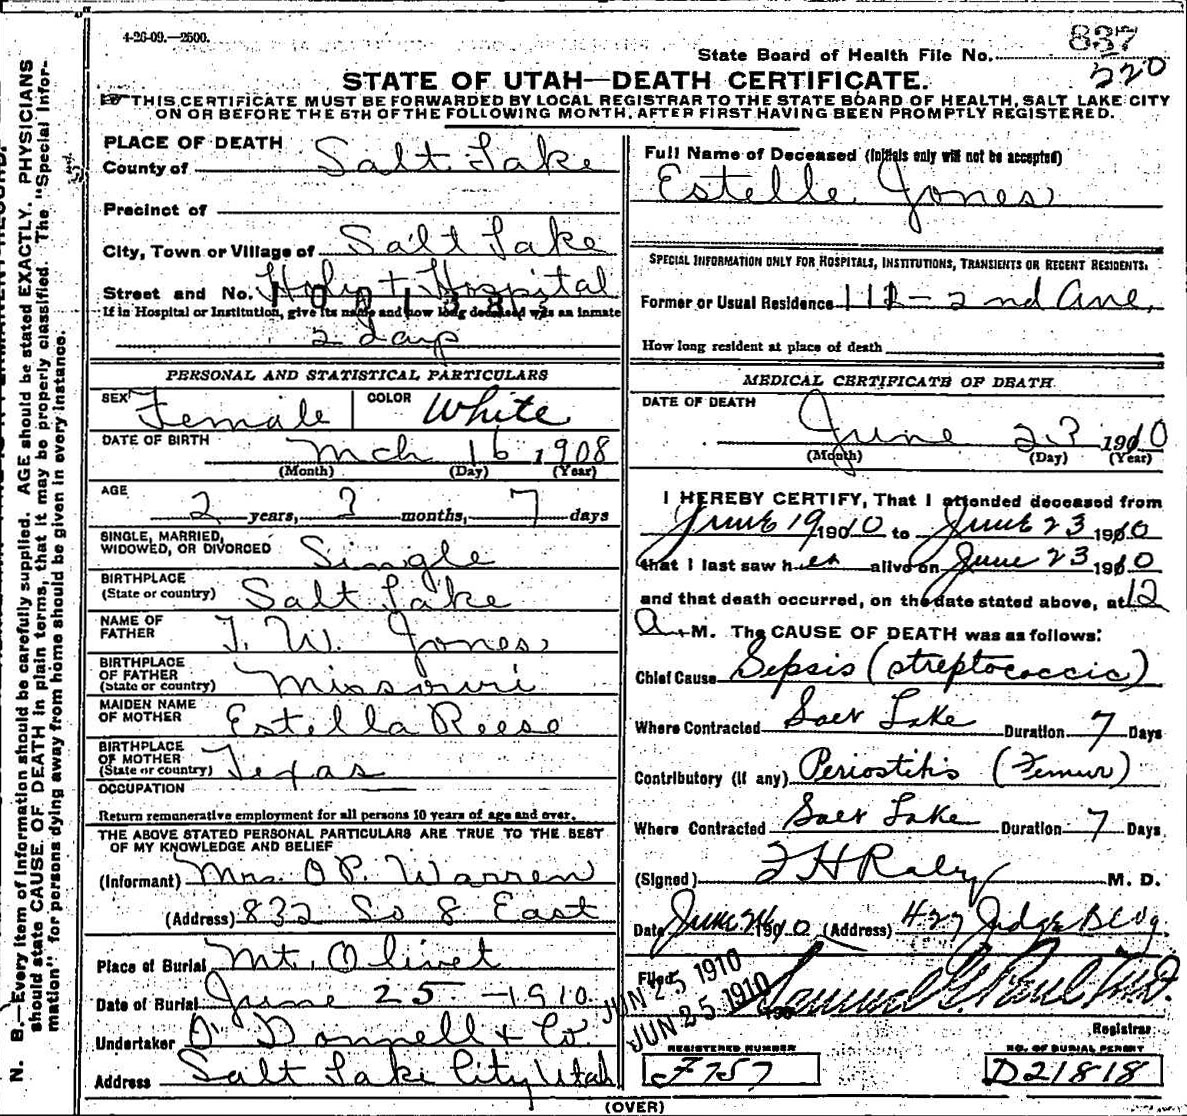 4-26-09.—2500.
837
State Board of Health File No.
220
STATE OF UTAH—DEATH CERTIFICATE.
☞ THIS CERTIFICATE MUST BE FORWARDED BY LOCAL REGISTRAR TO THE STATE BOARD OF HEALTH, SALT LAKE CITY
ON OR BEFORE THE 5TH OF THE FOLLOWING MONTH, AFTER FIRST HAVING BEEN PROMPTLY REGISTERED.
PLACE OF DEATH
County of Salt Lake
Precinct of
City, Town or Village of Salt Lake
Street and No. Holy + Hospital
If in Hospital or Institution, give its name and how long deceased was an inmate
2 days
PERSONAL AND STATISTICAL PARTICULARS
SEX Female COLOR White
DATE OF BIRTH Mch 16 1908
(Month) (Day) (Year)
AGE
2 years, 3 months, 7 days
SINGLE, MARRIED,
WIDOWED, OR DIVORCED Single
BIRTHPLACE
(State or country) Salt Lake
NAME OF
FATHER W. Jones
BIRTHPLACE
OF FATHER
(State or country) Missouri
MAIDEN NAME
OF MOTHER Estella Reese
BIRTHPLACE
OF MOTHER
(State or country) Texas
OCCUPATION
Return remunerative employment for all persons 10 years of age and over.
THE ABOVE STATED PERSONAL PARTICULARS ARE TRUE TO THE BEST
OF MY KNOWLEDGE AND BELIEF
(Informant) Mrs O P. Warren
(Address) 832 So 8 East
Place of Burial Mt. Olivet
Date of Burial June 25 - 1910
Undertaker O'Donnell & Co.
Address Salt Lake City Utah
Full Name of Deceased (Initials only will not be accepted)
Estelle Jones
SPECIAL INFORMATION ONLY FOR HOSPITALS, INSTITUTIONS, TRANSIENTS OR RECENT RESIDENTS:
Former or Usual Residence 111 - 2nd Ave,
How long resident at place of death
MEDICAL CERTIFICATE OF DEATH
DATE OF DEATH
June 23 1910
(Month) (Day) (Year)
I HEREBY CERTIFY, That I attended deceased from
June 19 1910 to June 23 1910
that I last saw her alive on June 23 1910
and that death occurred, on the date stated above, at 12
A. M. The CAUSE OF DEATH was as follows:
Chief Cause Sepsis (streptococcic)
Where Contracted Salt Lake Duration 7 Days
Contributory (if any) Periostitis (Femur)
Where Contracted Salt Lake Duration 7 Days
(Signed) H Raley M. D.
Date June 24 1910 (Address) 427 Judge Bldg.
Filed JUN 25 1910
JUN 25 1910
Samuel G. Paul M.D.
Registrar
REGISTERED NUMBER NO. OF BURIAL PERMIT
F757 D21818
(OVER)
N. B.—Every item of information should be carefully supplied. AGE should be stated EXACTLY. PHYSICIANS
should state CAUSE OF DEATH in plain terms, that it may be properly classified. The "Special Infor-
mation" for persons dying away from home should be given in every instance.